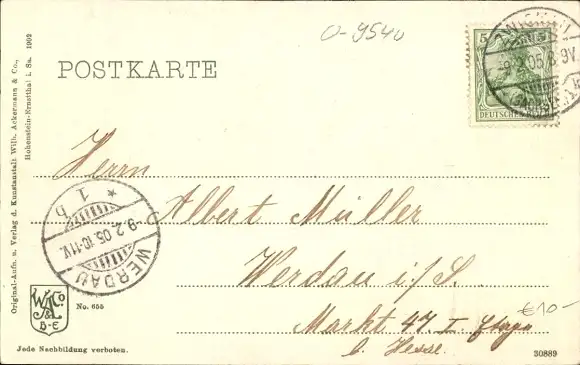 0-9540
POSTKARTE
5
DEUTSCHES REICH
9.2.05. 8-9V.
Herrn
Albert Müller
Werdau i/S.
Markt 47. I. Etage
b. Hesse.
€10-
WERDAU
9.2.05. 10-11V.
* 1 b
Original-Aufn. u. Verlag d. Kunstanstalt Wilh. Ackermann & Co.,
Hohenstein-Ernstthal i. Sa. 1902
W.A. & Co.
B-E
No. 655
Jede Nachbildung verboten.
30889